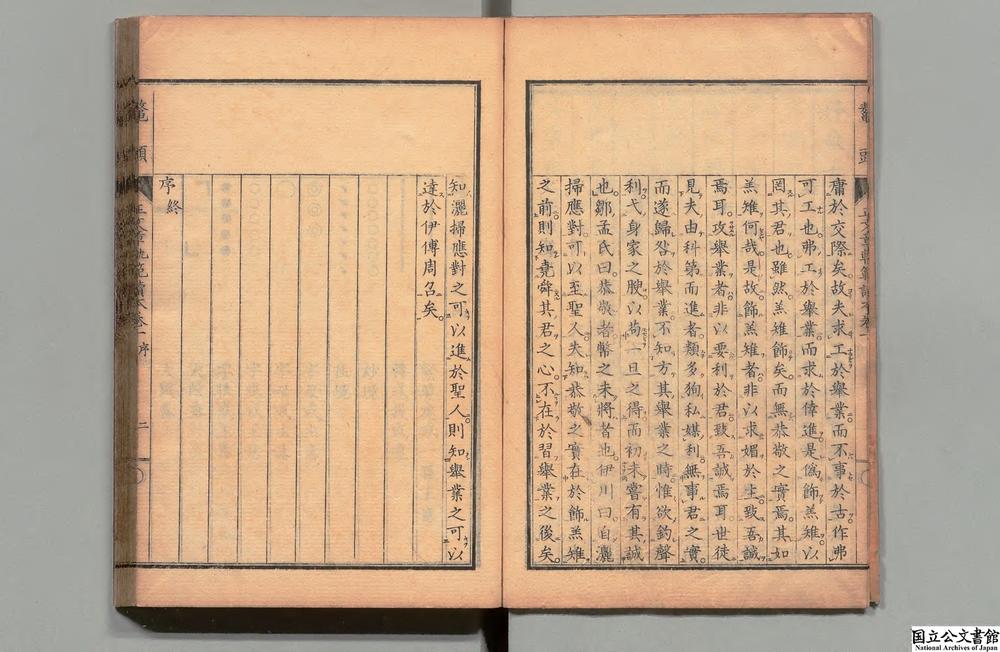 庸於交際矣故夫求工於舉業而不事於古作弗
可工也弗工於舉業而求於倖進是偽飾羔雉以
罔其君也雖然羔雉飾矣而無恭敬之實焉其如
羔雉何哉是故飾羔雉者非以求媚於主致吾誠
焉耳攻舉業者非以要利於君致吾誠焉耳世徒
見夫由科第而進者類多狥私媒利無事君之實
而遂歸咎於舉業不知方其舉業之時惟欲釣聲
利弋身家之腴以苟一旦之得而初未嘗有其誠
也鄒孟氏曰恭敬者幣之未將者也伊川曰自灑
掃應對可以至聖人夫知恭敬之實在於飾羔雉
之前則知堯舜其君之心不在於習舉業之後矣
知灑掃應對之可以進於聖人則知舉業之可以
達於伊傅周召矣
序終
鼇頭
正文章軌範讀本卷一序
二
国立公文書館
National Archives of Japan